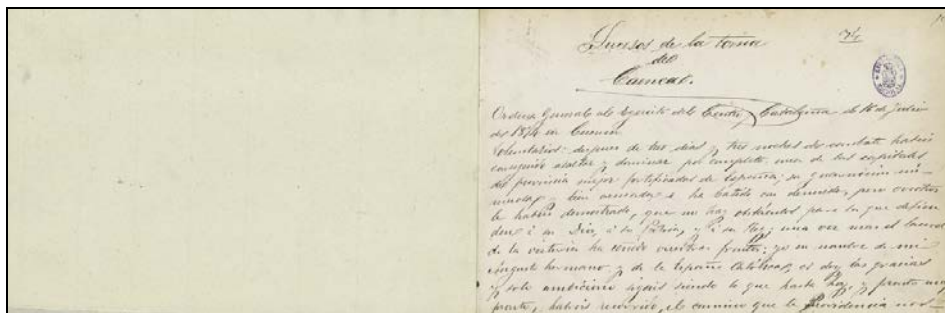 74
Sucesos de la toma
de
Cuenca.
Orden General del Ejército del Centro y Cataluña del 16 de Julio
del 1874 en Cuenca
Voluntarios: despues de tres dias y tres noches de combate habeis
conseguido asaltar y dominar por completo, una de las capitales
de provincia mejor fortificadas de España; su guarnicion nu-
merosa y bien armada, se ha batido con denuedo, pero vosotros
le habeis demostrado, que no hay obstáculos para los que defien
den á su Dios, á su Pátria, y á su Rey; una vez mas el laurel
de la victoria ha ceñido vuestras frentes: yo en nombre de mi
augusto hermano y de la España Católica, os doy las gracias
y solo ambiciono sigais siendo lo que hasta hoy, y pronto muy
pronto, habeis recorrido, el camino que la Providencia nos